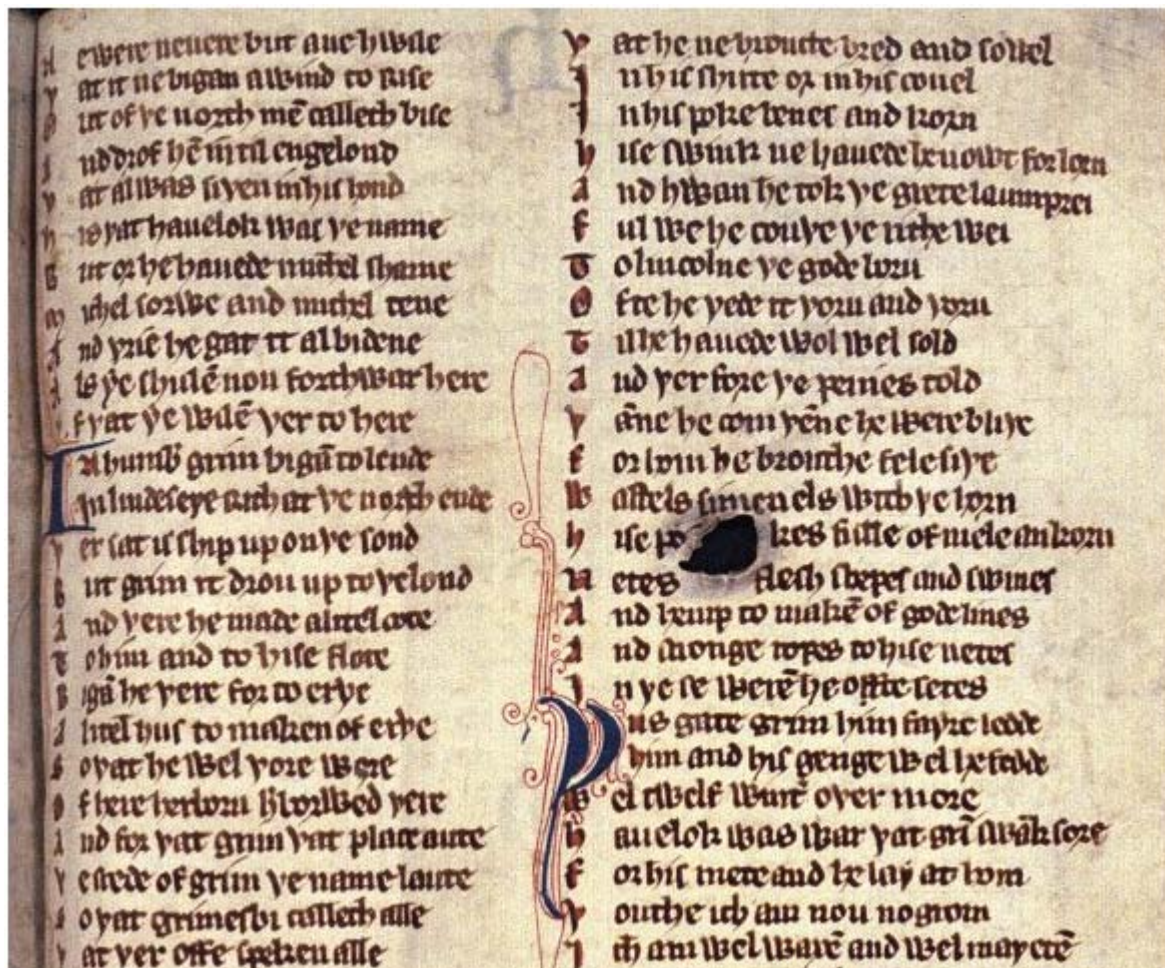 He were neuere but ane hwile
Þat it ne bigan a wind to rise
Out of þe north mē calleth bise
And drof hē intil engelond
Þat al was siþen in his hond
His þat hauelok was þe name
But or he hauede michel shame
Michel sorwe and michel tene
And þrie he gat it al bidene
Als ye shulē nou forthwar here
Yf þat ye wilē þer to here
In humb̄ grim bigā to lende
In lindeseye rith at þe north ende
Þer sat is ship up on þe sond
But grim it drou up to þe lond
And þere he made a litel cote
To him and to hise flote
Bigā he þere for to erþe
A litel hus to maken of erþe
So þat he wel þore were
Of here herboru h̄borwed þere
And for þat grim þat place aute
Þe stede of grim þe name laute
So þat grimesbi calleth alle
Þat þer offe speken alle
Þat he ne broucte bred and sowel
In his shirte or in his couel
In his poke benes and korn
Hise swink ne hauede he nowt forlorn
And hwan he tok þe grete laumprei
Ful we he couþe þe rithe wei
To lincolne þe gode boru
Ofte he yede it þoru and þoru
Til he hauede wol wel sold
And þer fore þe penies told
Þāne he com þēne he were bliþe
For hom he brouthe fele siþe
Wastels simenels with þe horn
Hise pokes fulle of mele an korn
Netes flesh shepes and swines
And hemp to makē of gode lines
And stronge ropes to hise netes
In þe se werē he ofte setes
Þus gate grim him fayre ledde
Him and his genge wel he fedde
Wel twelf wint̄ oþer more
Hauelok was war þat grī swāk sore
For his mete and he lay at hom
Þouthe ich am nou no grom
Ich am wel waxē and wel may etē